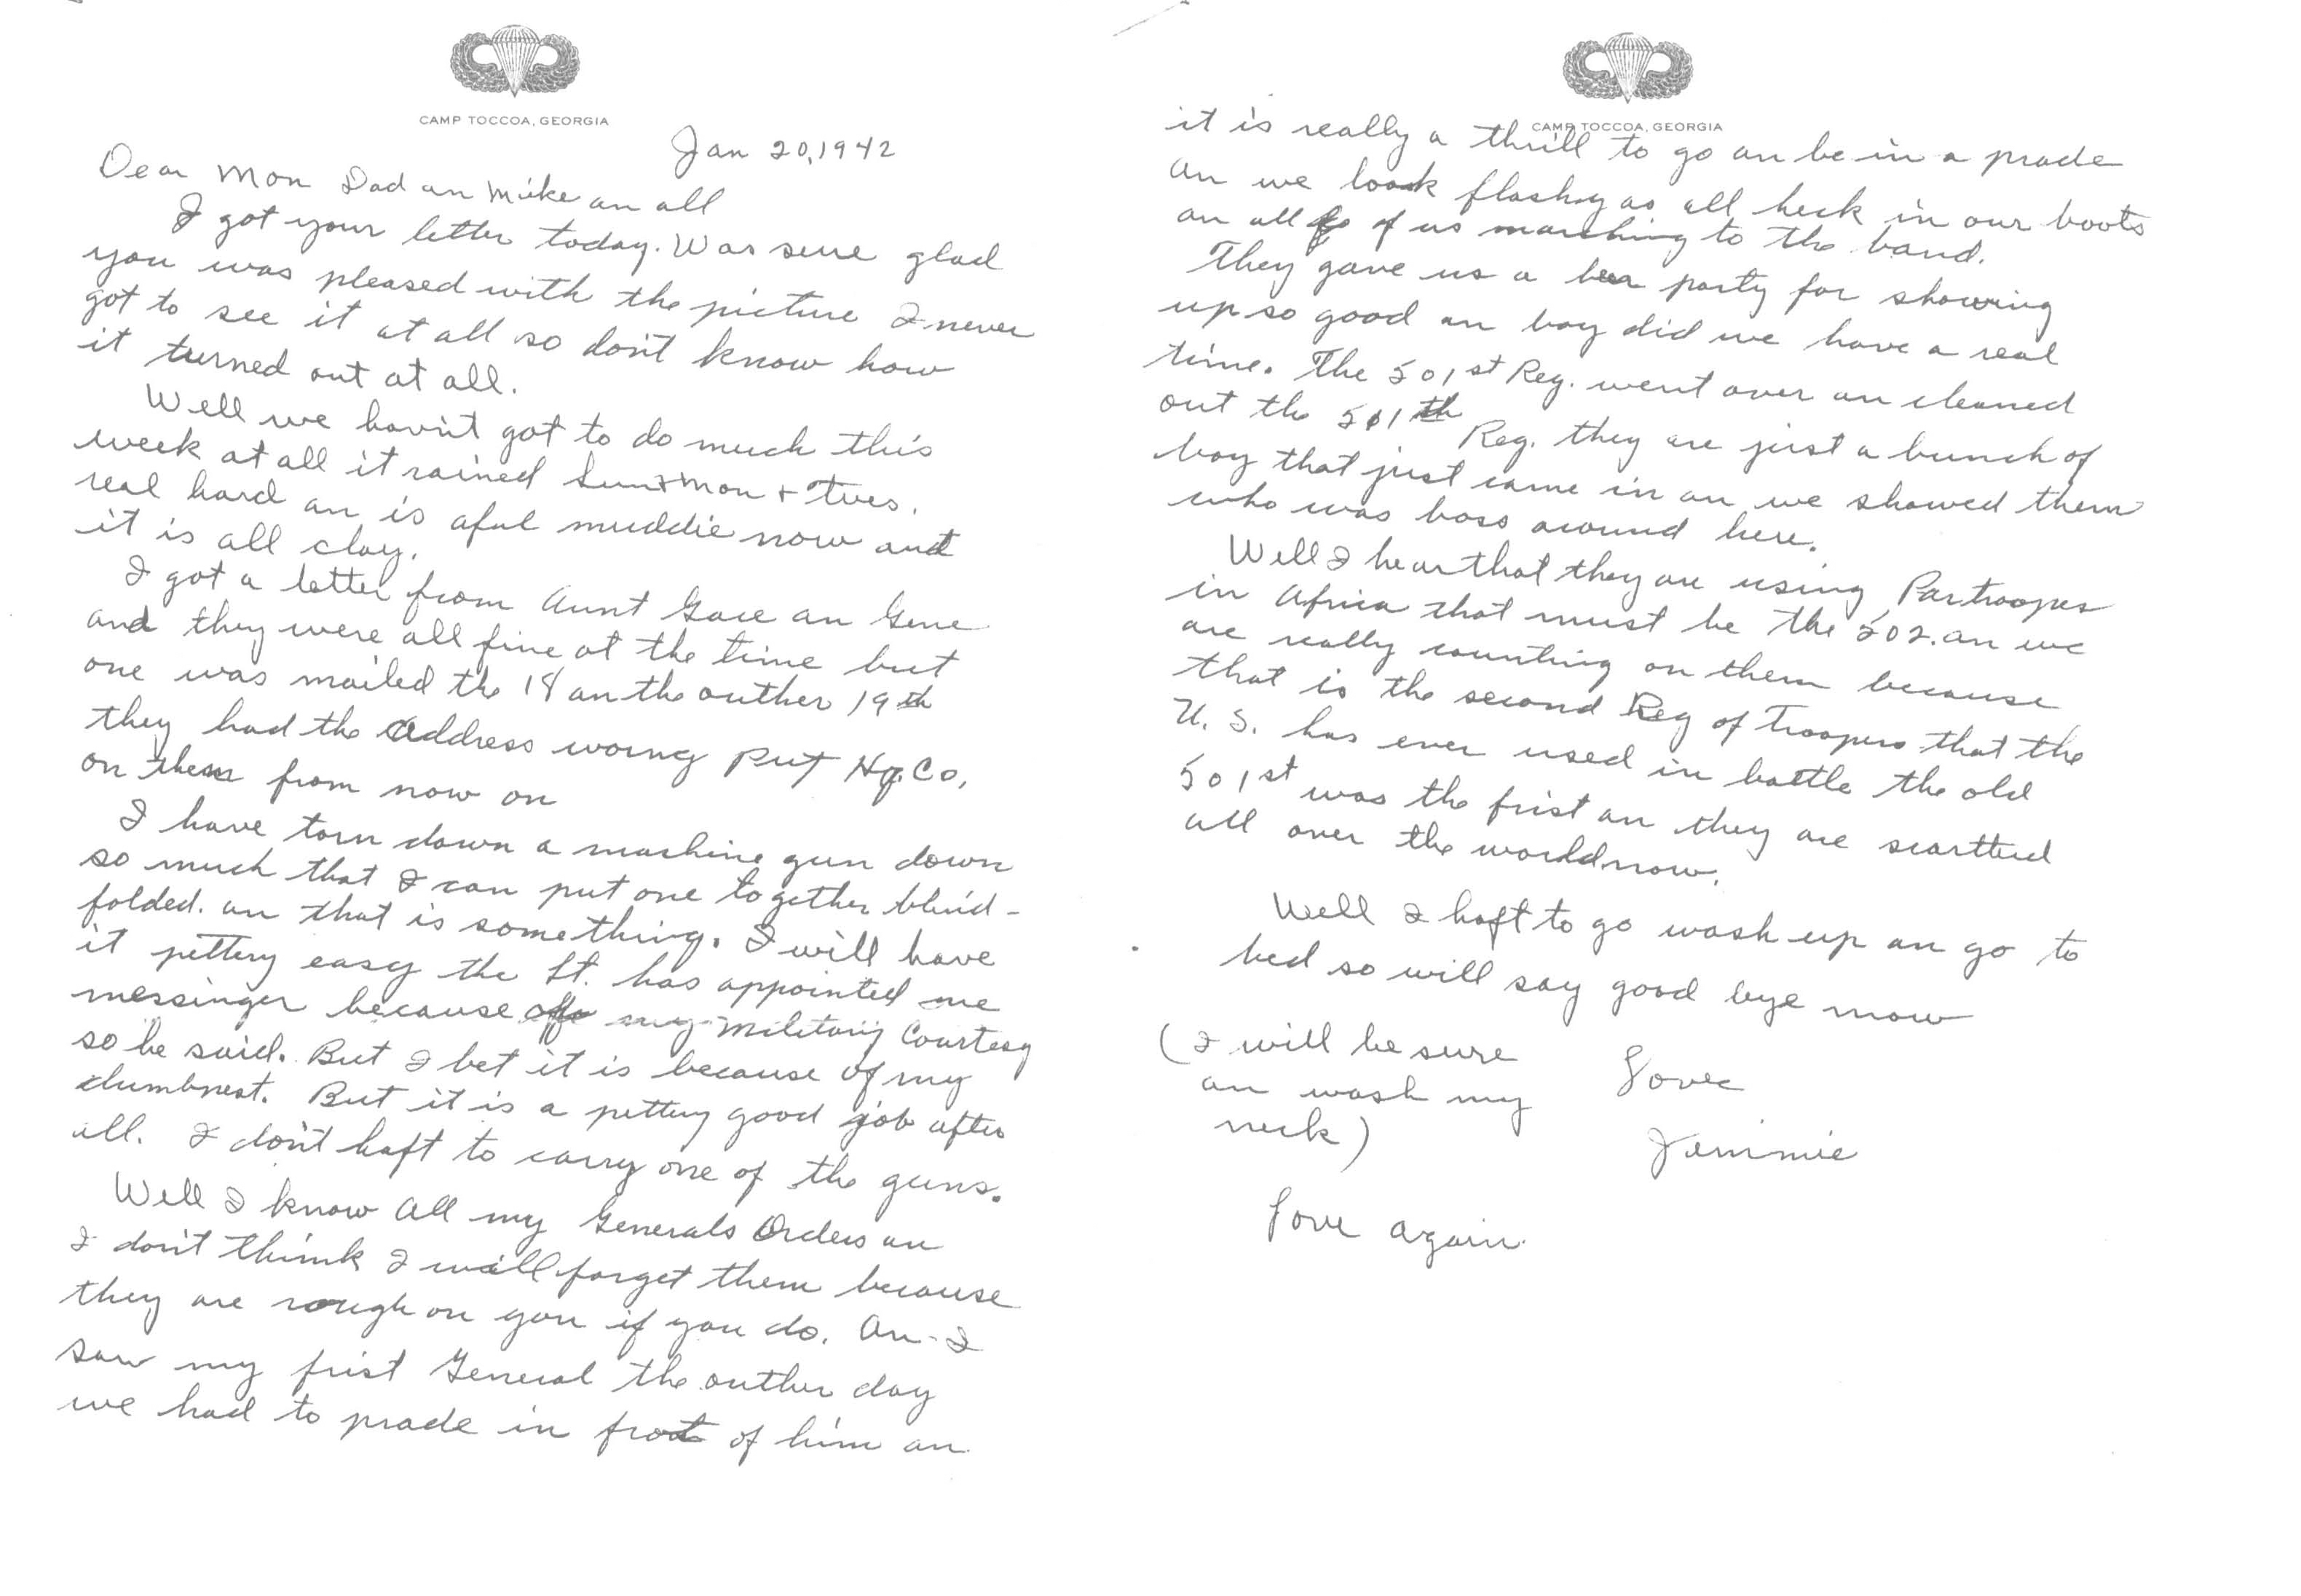 CAMP TOCCOA, GEORGIA
Jan 20, 1942
Dear Mon Dad an Mike an all
I got your letter today. Was sure glad
you was pleased with the picture I never
got to see it at all so don't know how
it turned out at all.
Well we havn't got to do much this
week at all it rained Sun + Mon + Tues.
real hard an is aful muddie now and
it is all clay.
I got a letter from Aunt Grace an Gene
and they were all fine at the time but
one was mailed the 18 an the outher 19th
they had the address worng Put Hq. Co.
on them from now on
I have torn down a mashine gun down
so much that I can put one together blind-
folded. an that is something. I will have
it pettery easy the Lt. has appointed me
messinger because of my Military Courtesy
so he said. But I bet it is because of my
dumbnest. But it is a pettery good job after
all. I don't haft to carry one of the guns.
Well I know all my Generals Orders an
I don't think I will forget them because
they are rough on you if you do. An I
saw my frist General the outher day
we had to prade in front of him an
CAMP TOCCOA, GEORGIA
it is really a thrill to go an be in a prade
an we look flashy as all heck in our boots
an all of us marching to the band.
They gave us a beer party for showing
up so good an boy did we have a real
time. The 501st Reg. went over an cleaned
out the 511th Reg. they are just a bunch of
boy that just came in an we showed them
who was boss around here.
Well I hear that they are using Partroopes
in Africa that must be the 502. an we
are really counting on them because
that is the second Reg of Troopers that the
U. S. has ever used in battle the old
501st was the frist an they are scartterd
all over the world now.
Well I haft to go wash up an go to
bed so will say good bye now
(I will be sure
an wash my
neck)
Love
Jimmie
Love again.